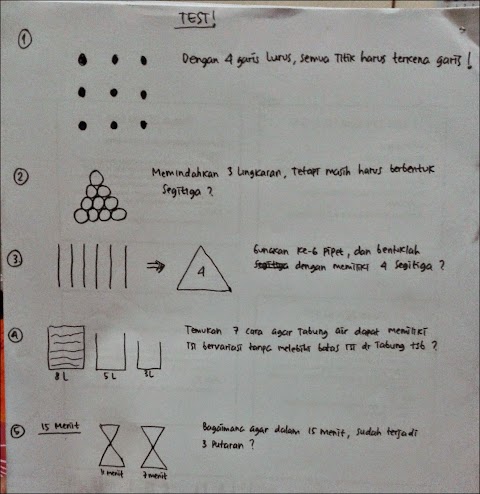 TEST!
1
Dengan 4 garis Lurus, semua Titik harus terkena garis!
2
Memindahkan 3 Lingkaran, tetapi masih harus berbentuk
Segitiga?
3
4
Gunakan ke-6 Pipet, dan bentuklah
segitiga dengan memiliki 4 segitiga?
4
8 L
5L
3L
Temukan 7 cara agar Tabung air dapat memiliki
isi bervariasi tanpa melebihi batas isi dr Tabung tsb?
5
15 Menit
11 menit
7 menit
Bagaimana agar dalam 15 menit, sudah terjadi
3 Putaran?